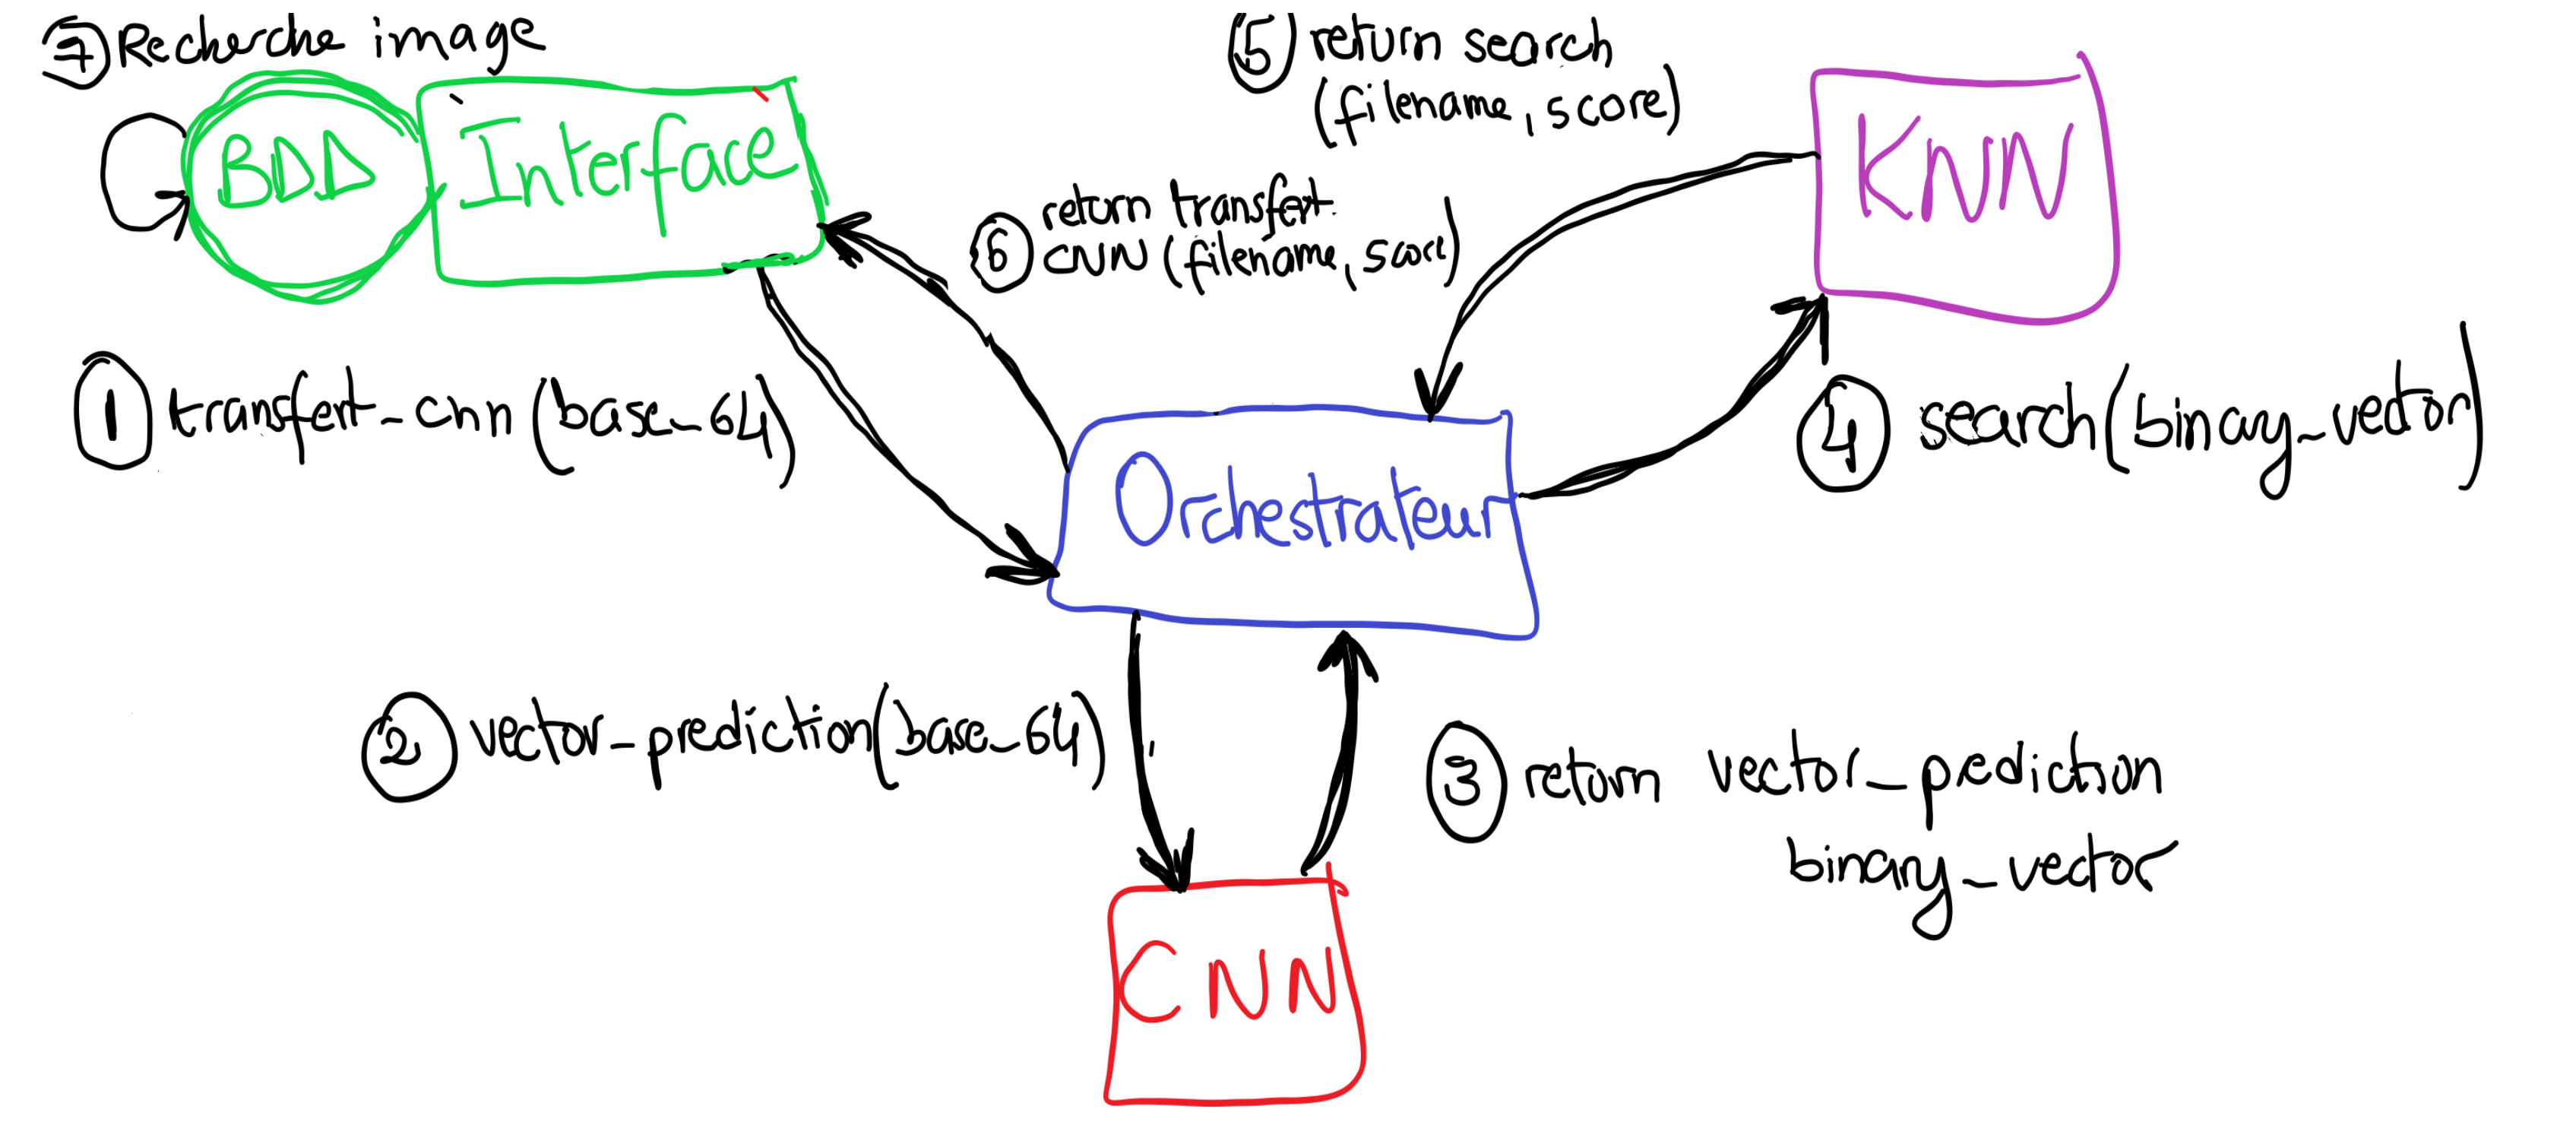 ⑦ Recherche image
BDD
Interface
⑤ return search
(filename, score)
KNN
⑥ return transfert
CNN (filename, score)
① transfert_cnn (base_64)
④ search(binary_vector)
Orchestrateur
② vector_prediction(base_64)
③ return vector_prediction
binary_vector
CNN